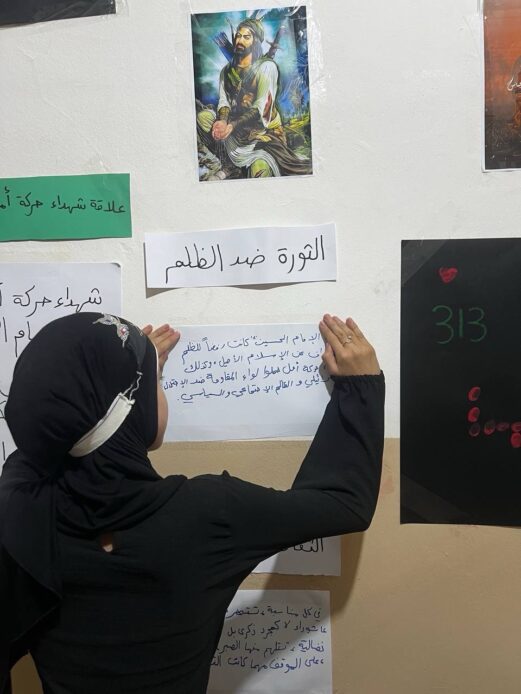 علاقة شهداء حركة أم
الثورة ضد الظلم
شهداء حركة أ
الإمام الحسين" كانت رمزاً للظلم
عن الإسلام الأصيل، وكذلك
أمل حملوا لواء المقاومة ضد الاحتلال
والظالم الاجتماعي والسياسي
313
في كل مناسبة، تستحضر
عاشوراء لا كمجرد ذكرى بل
نضالية، تستلهم منها الصبر
على الموقف مهما كانت